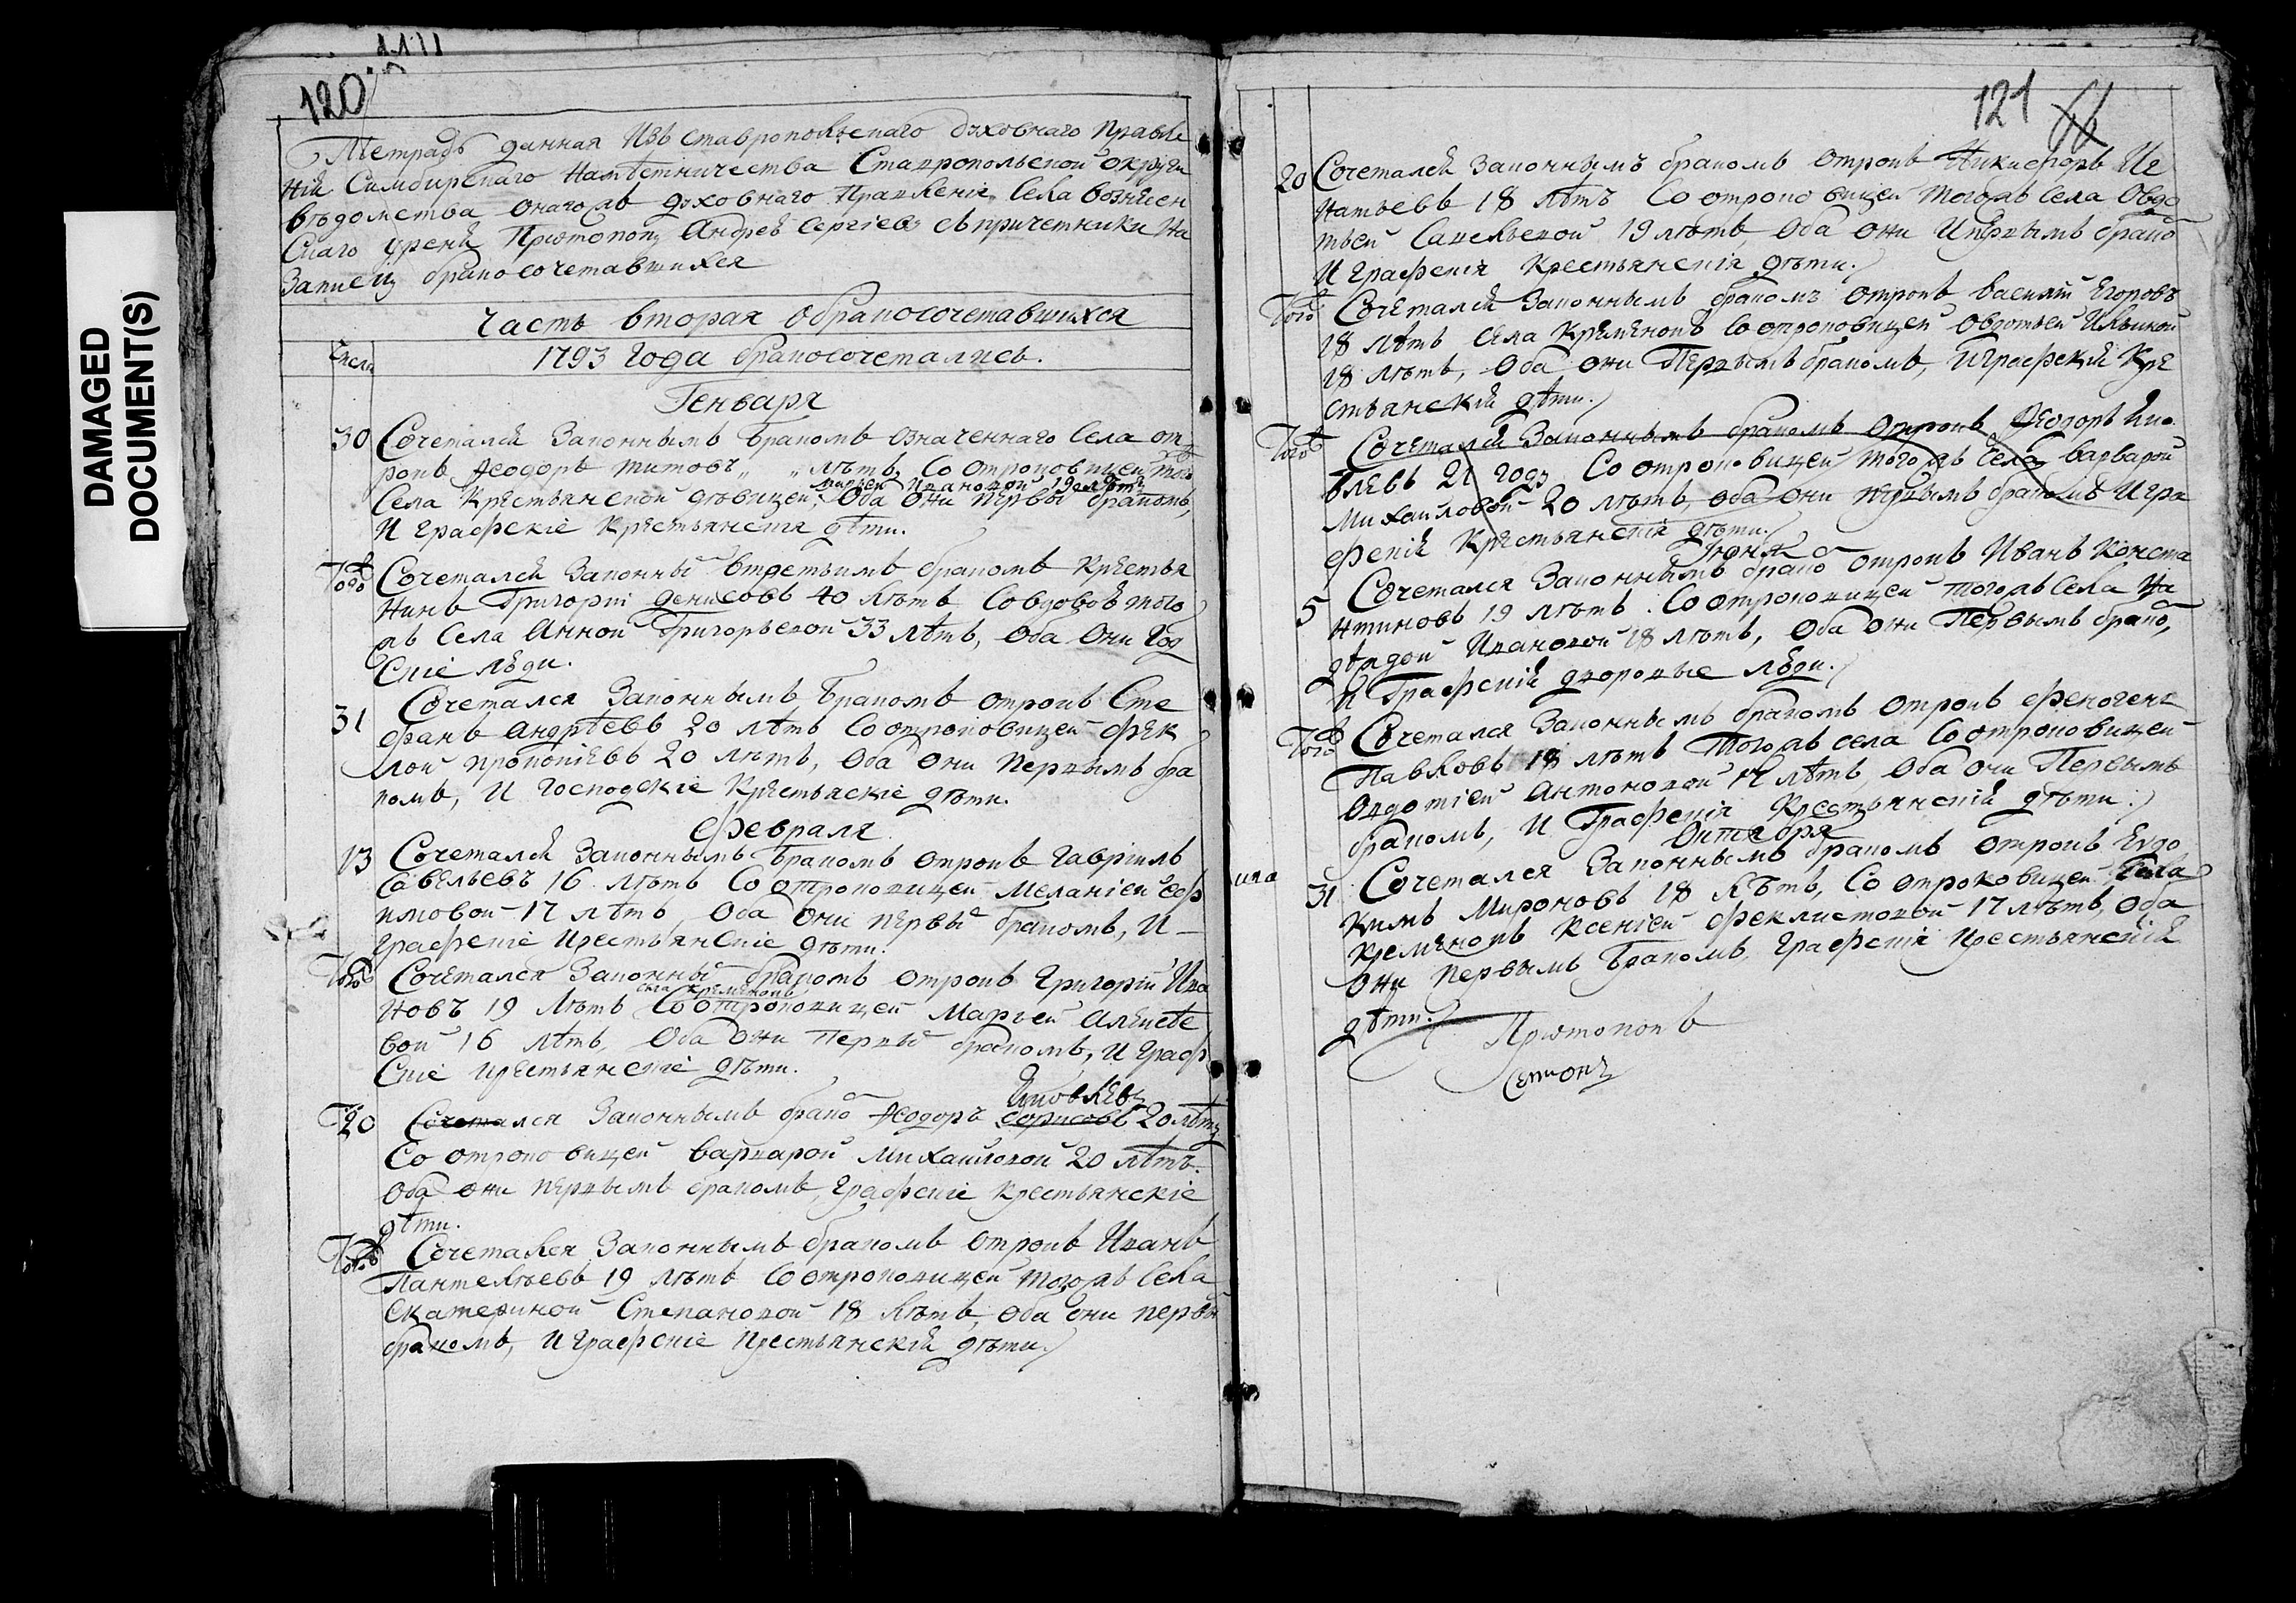 DAMAGED
DOCUMENT(S)
120
Тетрадь данная Изъ ставропольскаго духовнаго Правле
нїя Симбирскаго Наместничества Ставропольской округи
вѣдомства онагожъ духовнаго Правленїя Села вознесен
скаго Протопопу Андрею Сергїеву съ причетники На
Записку бракосочетавшихся
Часть вторая обракосочетавшихся
Числа
1793 года бракосочетались.
Генваря
30 Сочетался Законнымъ бракомъ означеннаго Села от
рокъ Ѳеодоръ титовъ „ „ лѣтъ, Со отроковицей тогожъ
марьей Ивановой 19 лѣтъ
Села Крестьянской дѣвицей, Оба они первы бракомъ,
И графскїе крестьянскїя дѣти.
Тогож Сочетался Законны втретьимъ бракомъ крестья
нинъ Григорїй денисовъ 40 лѣтъ Совдовой того
жъ Села Анной Григорьевой 33 лѣтъ, Оба Они Год
скїе люди.
31 Сочетался Законнымъ бракомъ отрокъ Сте
фанъ Андрѣевъ 20 лѣтъ Со отроковицей Фек
лой прокопїевъ 20 лѣтъ, Оба Они первымъ бра
комъ, И Господскїе крестьяскїе дѣти.
Февраля
13 Сочетался Законнымъ бракомъ отрокъ Гаврїилъ
Савельевъ 16 лѣтъ Со отроковицей Меланїей Еф
имовой 17 лѣтъ, Оба Они первы бракомъ, И
графскїе крестьянскїе дѣти.
Тогож Сочетался Законны бракомъ отрокъ Григорїй Ива
села кременокъ
новъ 19 лѣтъ Со отроковицей Марьей Алексѣе
вой 16 лѣтъ, Оба Они Первы бракомъ, И граф
скїе крестьянскїе дѣти.
Яковлевъ
20 Сочетался Законнымъ брако Ѳеодоръ борисовъ 20 лѣтъ
Со отроковицей варварой Михайловой 20 лѣтъ.
Оба они первымъ бракомъ, графскїе крестьянскїе
дѣти.
Тогож Сочетался Законнымъ бракомъ Отрокъ Иванъ
Пантелѣевъ 19 лѣтъ Со отроковицей тогожъ Села
Екатериной Степановой 18 лѣтъ, Оба они первы
бракомъ, И графскїе крестьянскїй дѣти.
121
20 Сочетался Законнымъ бракомъ отрокъ Никифоръ Иг
натьевъ 18 лѣтъ Со отроковицей тогожъ Села Овдо
тьей Савельевой 19 лѣтъ, Оба они Ипервымъ брако
И графскїя Крестьянскїя дѣти.
Тогож Сочетался Законнымъ бракомъ отрокъ василїй Егоровъ
18 лѣтъ Села Кременокъ Со отроковицей Овдотьей Ильиной
18 лѣтъ, Оба они Первымъ бракомъ, Играфскїй Кре
стьянскїй дѣти.
Тогож Сочетался Законнымъ бракомъ Отрокъ Ѳеодоръ Яко
влевъ 21 году Со отроковицей того жъ Села варварой
Михайловой 20 лѣтъ, оба они первымъ бракомъ И гра
фскїй Крестьянскїя дѣти.
Июня
5 Сочетался Законнымъ брако отрокъ Иванъ Конста
нтиновъ 19 лѣтъ. Со отроковицей тогожъ Села На
дѣждой Ивановой 18 лѣтъ, Оба они Первымъ брако,
И Графскїй дворовые люди.
Тогож Сочетался Законнымъ бракомъ отрокъ Финогенъ
Павловъ 18 лѣтъ Тогожъ села Со отроковицей
Овдотїей Антоновой 17 лѣтъ, Оба они Первымъ
бракомъ, И Графскїя Крестьянскїй дѣти.
Октября
31 Сочетался Законнымъ бракомъ отрокъ Евдо
кимъ Мироновъ 18 лѣтъ, Со отроковицей Села
Кременокъ Ксенїей Феклистовой 17 лѣтъ, Оба
Они Первымъ бракомъ, Графскїя крестьянскїй
дѣти.
Протопопъ